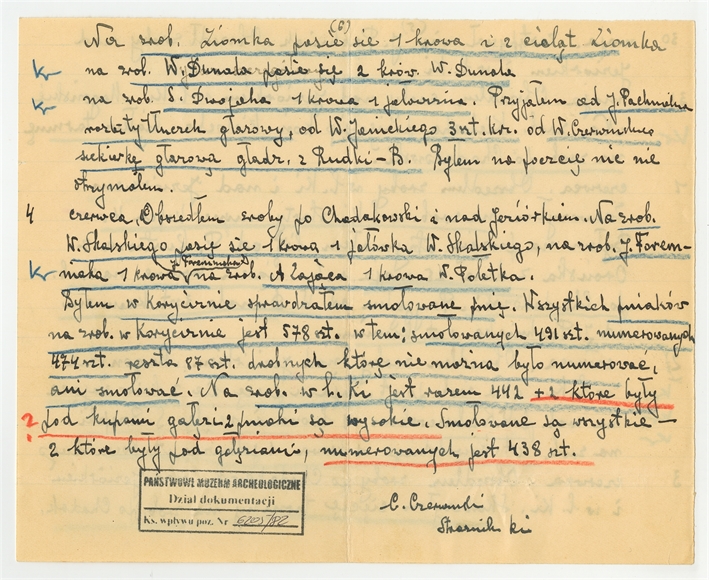 (6)
Na zrob. Ziomka pasie się 1 krowa i 2 cieląt Ziomka
na zrob. W. Dunala pasie się 2 krów. W. Dunala
na zrob. S. Dwojaka 1 krowa 1 jałowizna. Przyjąłem od J. Pachniaka
rozbity tłuczek głazowy, od W. 3 szt. krz. od W.
siekierkę głazową gładz. z Rudki-B. Byłem na poczcie nic nie
otrzymałem.
4 czerwca, Obszedłem zroby po Chodakowski i nad Jeziórkiem. Na zrob.
W. Skalskiego pasie się 1 krowa 1 jałówka W. Skalskiego, na zrob. J. Forem-
niaka 1 krowa J. Foremniaka na zrob. A Zająca 1 krowa W. Poletka.
Byłem w Koryciznie sprawdzałem smołowane pnie. Wszystkich pniaków
na zrob. w Koryciznie jest 578 szt. w tem; smołowanych 491 szt. numerowanych
474 szt. reszta 87 szt. drobnych które nie można było numerować,
ani smołować. Na zrob. w ł. Ki jest razem 442 + 2 które były
? pod kupami gałęzi 2 pniaki są wysokie. Smołowane są wszystkie —
2 które były pod gałęziami, numerowanych jest 438 szt.
PAŃSTWOWE MUZEUM ARCHEOLOGICZNE
Dział dokumentacji
Ks. wpływu poz. Nr 6205/92
C. Czerwiński
Strażnik ki